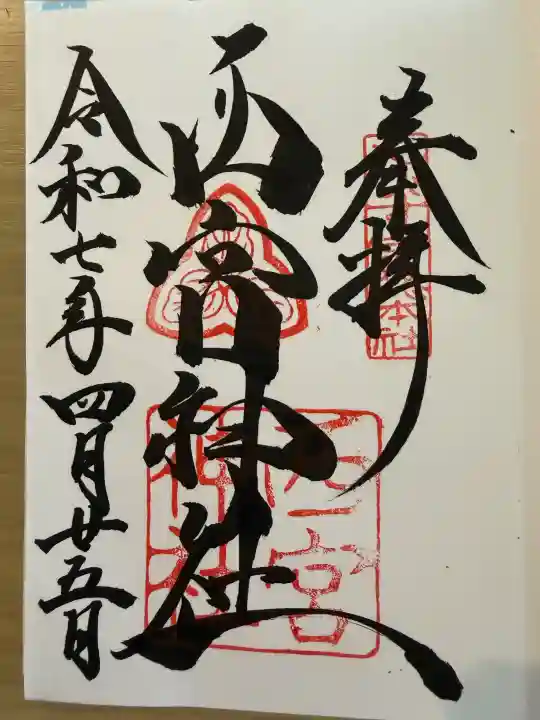 奉拝
西宮神社
令和七年四月廿五日